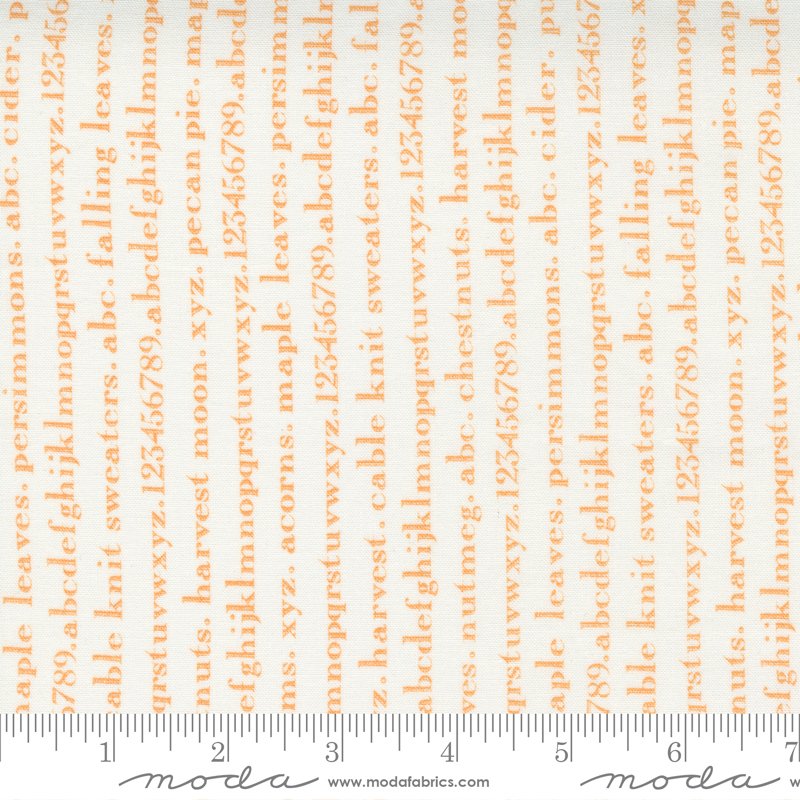 maple leaves. persimmons. abc. cider. pu
6789.abcdefghijklmnopqrstuvwxyz.123456
able knit sweaters. abc. falling leaves.
qrstuvwxyz.123456789.abcdefghijklmnop
nuts. harvest moon. xyz. pecan pie. map
efghijklmnopqrstuvwxyz.123456789.abcde
ms. xyz. acorns. maple leaves. persimm
mnopqrstuvwxyz.123456789.abcdefghijklm
z. harvest. cable knit sweaters. abc. fal
abcdefghijklmnopqrstuvwxyz.123456789.a
ves. nutmeg. abc. chestnuts. harvest moo
qrstuvwxyz.123456789.abcdefghijklmnop
aple leaves. persimmons. abc. cider. pu
789.abcdefghijklmnopqrstuvwxyz.1234567
able knit sweaters. abc. falling leaves. x
qrstuvwxyz.123456789.abcdefghijklmnopq
nuts. harvest moon. xyz. pecan pie. map
efghijklmnopqrstuvwxyz.123456789.abcde
1 2 3 4 5 6 7
moda www.modafabrics.com moda w